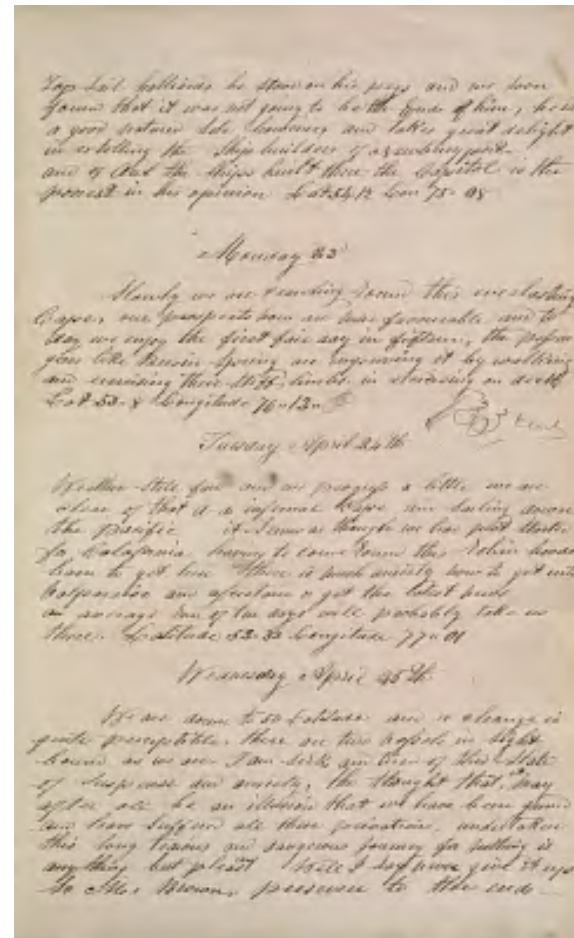 Top-sail halliards he stove on his pegs and we soon
found that it was not going to be the ends of him, he is
a good natured and takes great delight
in extolling the ship builders of Newburyport
and of all the ships built there the Capitol is the
in his opinion Lat 54.12 Lon 75-08
Monday 23
Slowly we are round this everlasting
Cape, our prospects now are more favourable and to
day we enjoy the first fair day in fifteen, the passen
gers like are by walking
and their stiff limbs in exercising on deck
Lat 53- Longitude 76-12-
Tuesday April 24th
Weather still fair and we progress a little we are
clear of that infernal Cape and sailing down
the Pacific it seems as though we had just started
for California having to come round this
horn to get here there is much anxiety now to get into
Valparaiso and or get the latest news
an average run of ten days will probably take us
there. Latitude 52-32 Longitude 77-01
Wednesday April 25th
We are down to 50 Latitude and a change is
quite perceptible. there are two vessels in sight
bound as we are I am sick and tired of this state
of suspense and anxiety, the thought that may
after all be an illusion that we have been
and have suffered all these privations, undertaken
this long tedious and dangerous journey for nothing is
anything but pleasant Still I say never give it up
persevere to the end